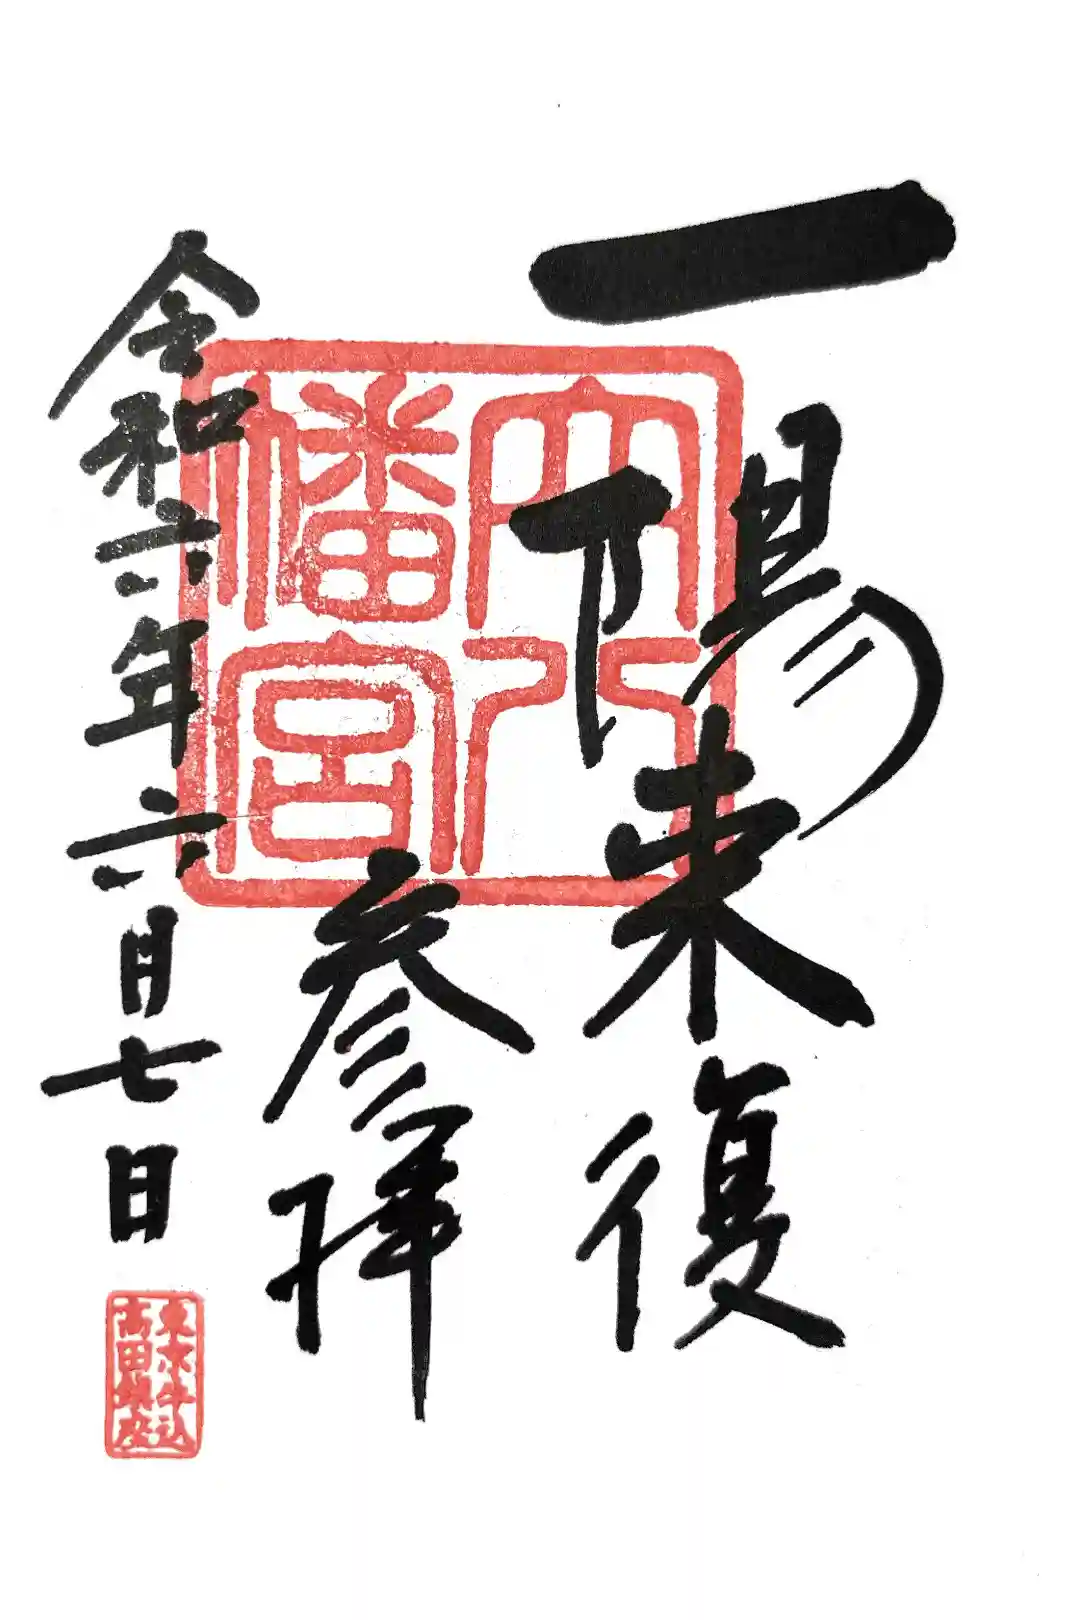 一陽来復
参拝
令和六年六月七日
穴八
幡宮
東京牛込
高田鎮座